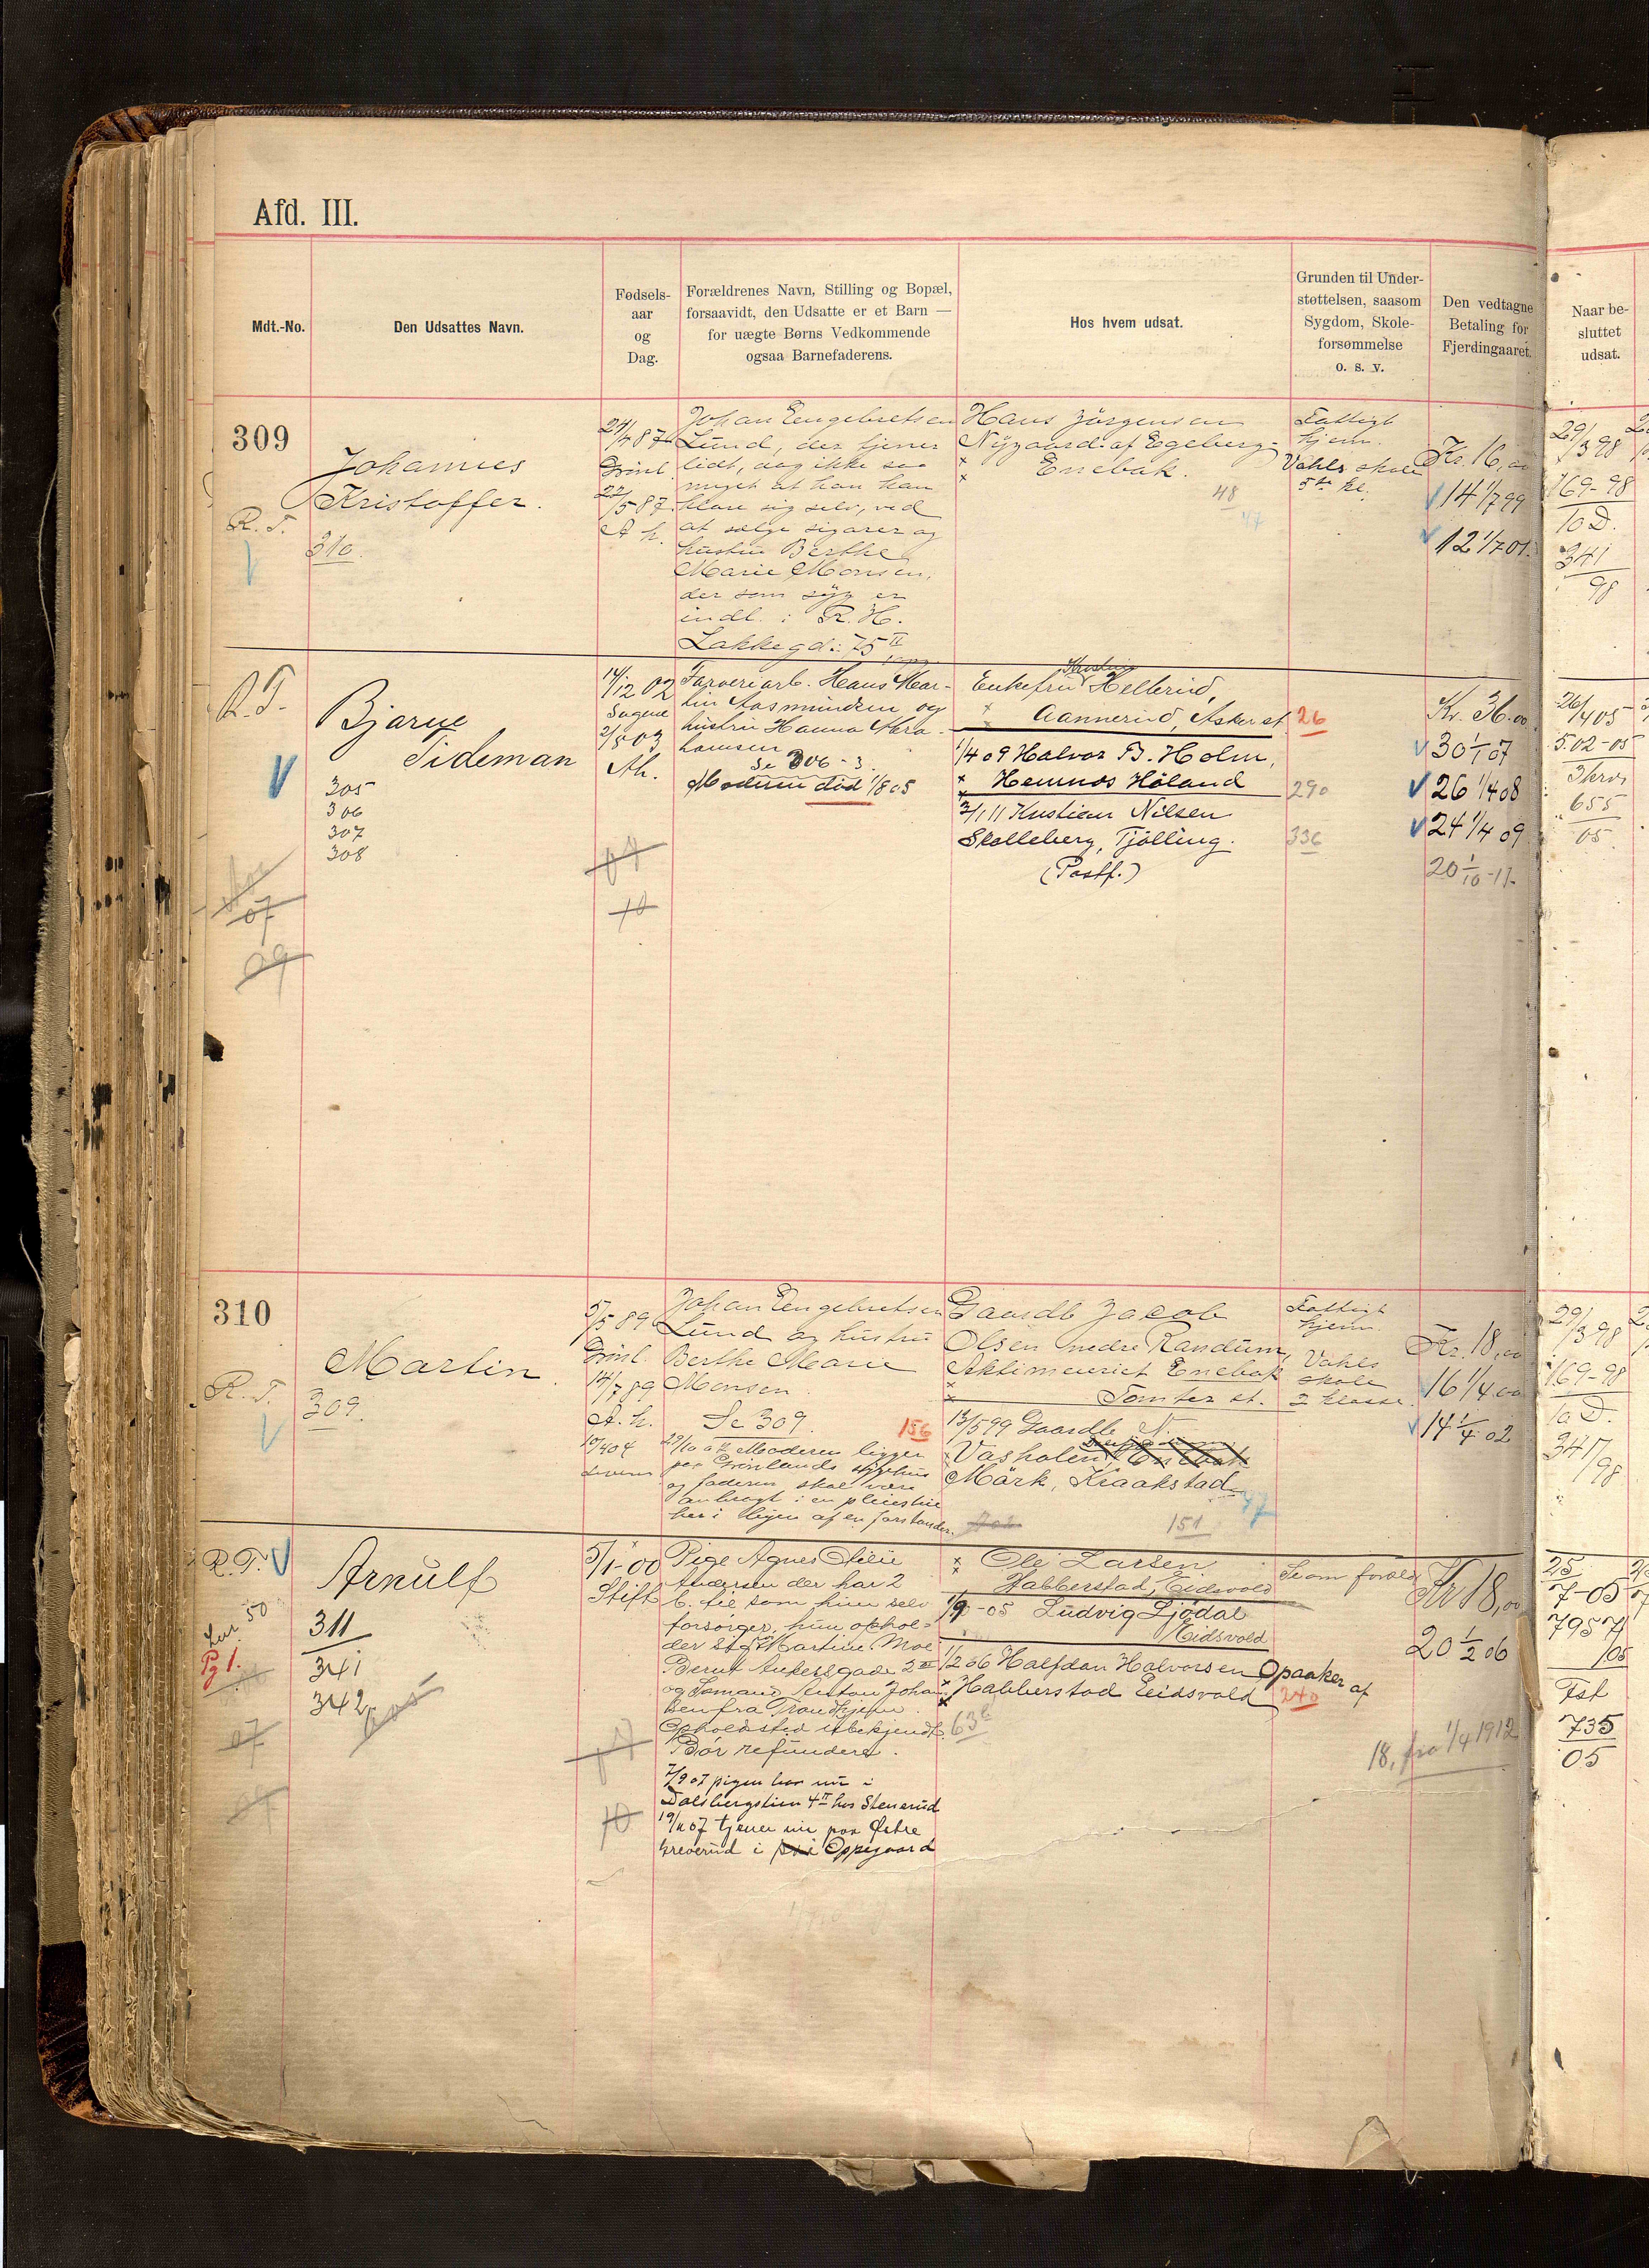 Afd. III.
Mdt.-No.
Den Udsattes Navn.
Fødsels-
aar
og
Dag.
Forældrenes Navn, Stilling og Bopæl,
forsaavidt, den Udsatte er et Barn —
for uægte Børns Vedkommende
ogsaa Barnefaderens.
Hos hvem udsat.
Grunden til Under-
støttelsen, saasom
Sygdom, Skole-
forsømmelse
o. s. v.
Den vedtagne
Betaling for
Fjerdingaaret.
Naar be-
sluttet
udsat.
309
Johannes
Kristoffer.
R. T.
310.
Grönl.
22/5 87.
A h.
Johan Engebretsen
Lund, der tjener
lidt, dog ikke saa
meget at han kan
klare sig selv, ved
at sælge sigarer og
hustru Berthe
Marie Monsen,
der som syg er
indl. i R. H.
Lakkegd. 75 II
Hans Jörgensen
Nygaard af Egeberg-
Enebak.
48
47
Fattigt
hjem.
Vahls skole
5te kl.
Kr. 16,00
14 1/7 99
12 1/7 01.
29/3 98
169-98
10 D.
341
98
R. T.
Bjarne
Tideman
305
306
307
308
07
09
14/12 02
Sagene
2/5 03
Ah.
10
Farveriarb. Hans Mar-
tin Aasmundsen og
hustru Hanna Abra-
hamsen
Se 306-3.
Moderen död 1/8 05
Enkefru Hellerud,
Aannerud, Asker st.
26
1/4 09 Halvor B. Holm,
Hemnæs Höland
290
2/1 11 Kristian Nilsen
Skalleberg, Tjölling.
336
(Postf.)
Kr. 36.00
30 1/1 07
26 1/4 08
24 1/4 09
20 1/10-11.
26/4 05
502-05
655
05
310
Martin.
R. T.
309.
5/5 89
Grönl.
14/7 89
A. h.
10/4 04
Johan Engebretsen
Lund og hustru
Berthe Marie
Monsen.
Se 309.
156
Moderen ligger
paa Grönlands sygehus
og faderen skal være
anbragt i en pleiestue
her i byen af en forstander.
Gaardb Jacob
Olsen nedre Randum,
Aktiemeieriet Enebak
Tomter st.
13/5 99 Gaardb. N.
Vasholen, Enebak
Mörk, Kraakstad
47
151
Fattigt
hjem
Vahls
skole
2 klasse.
Kr. 18,00
16 1/4 00
14 1/4 02
29/3 98
169-98
10 D.
341/98
R. T.
Arnulf
50
Pg 1.
311
341
342
07
5/1-00
Stift
10
Pige Agnes Otilie
Andersen der har 2
b. til som hun selv
forsörger, hun ophol-
der sig hos Martine Moe
Bernt Ankersgade 2 III
og Sömand Anton Johan-
sen fra Trondhjem.
Opholdsted ubekjendt.
Bör refunderes.
7/9 07 pigen bor nu i
Dalsbergstien 4 II hos Stenerud
19/11 07 tjener nu paa Østre
Greverud i Oppegaard
Ole Larsen
Habberstad, Eidsvold
1/9-05 Ludvig Ljödal
Eidsvold
1/2 06 Halfdan Halvorsen Opaaker af
Habberstad Eidsvold
240
Som forældr
Kr 18,00
20 1/2 06
18, fra 1/4 1912
25
7-05
795
05
Fst
735
05